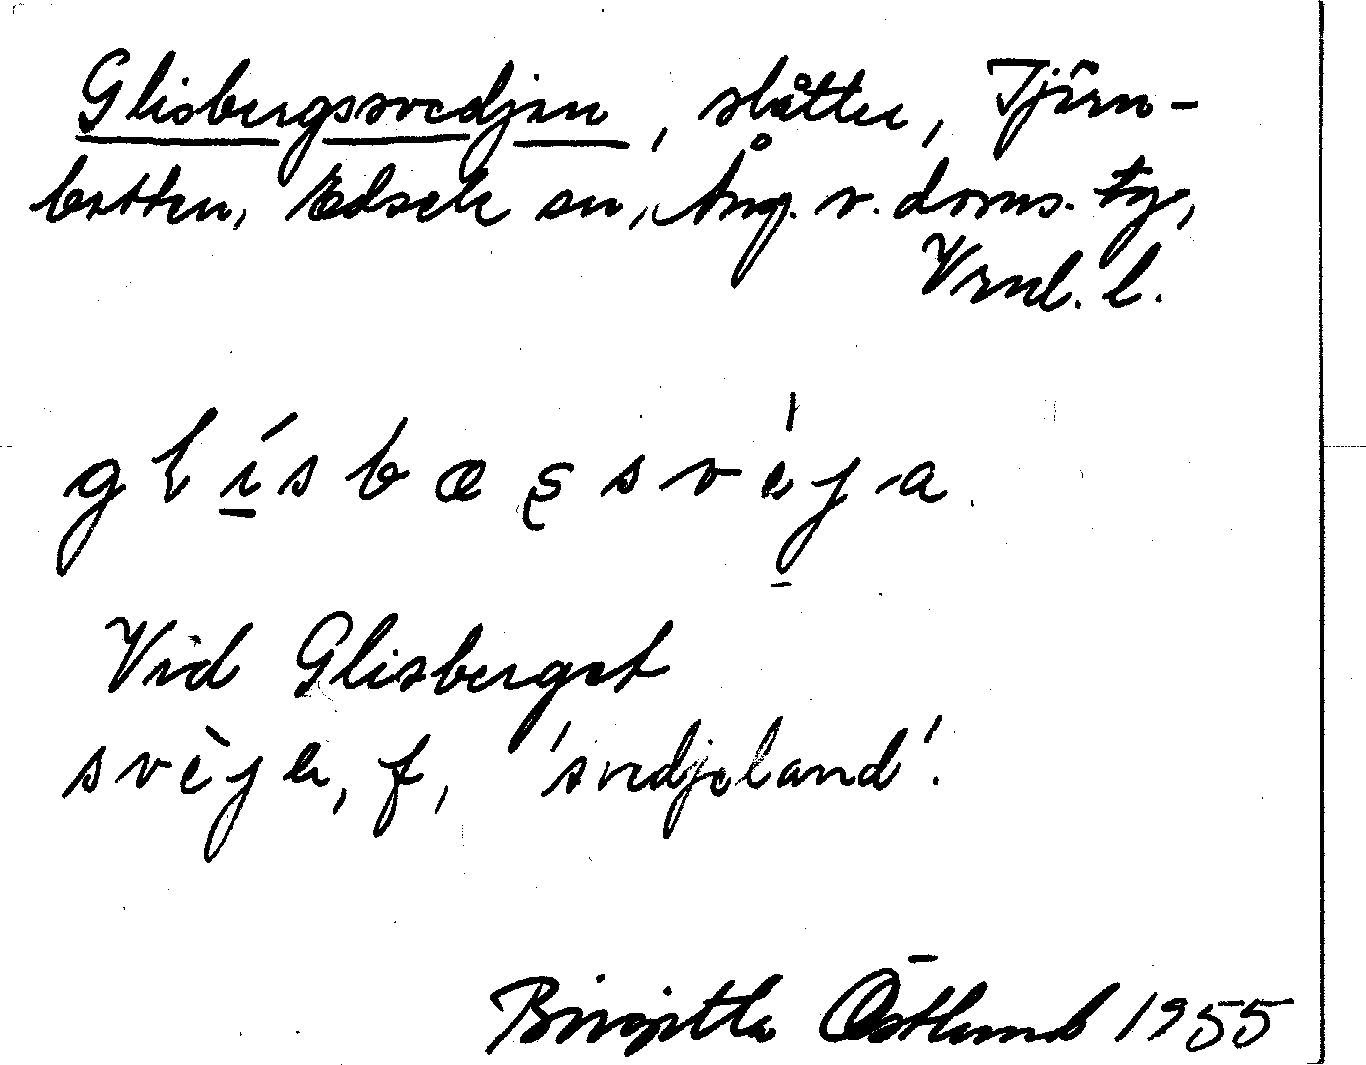 Glisbergssvedjan, slåtter, Tjärn-
botten, Edsele sn, Ång. v. doms. tg,
Vrnl. l.
gl̀ísbœʂsvèja
Vid Glisberget
svèja, f, 'svedjeland'.
Birgitta Östlund 1955